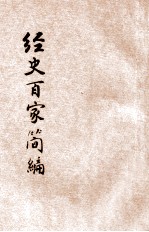 经史百家简编